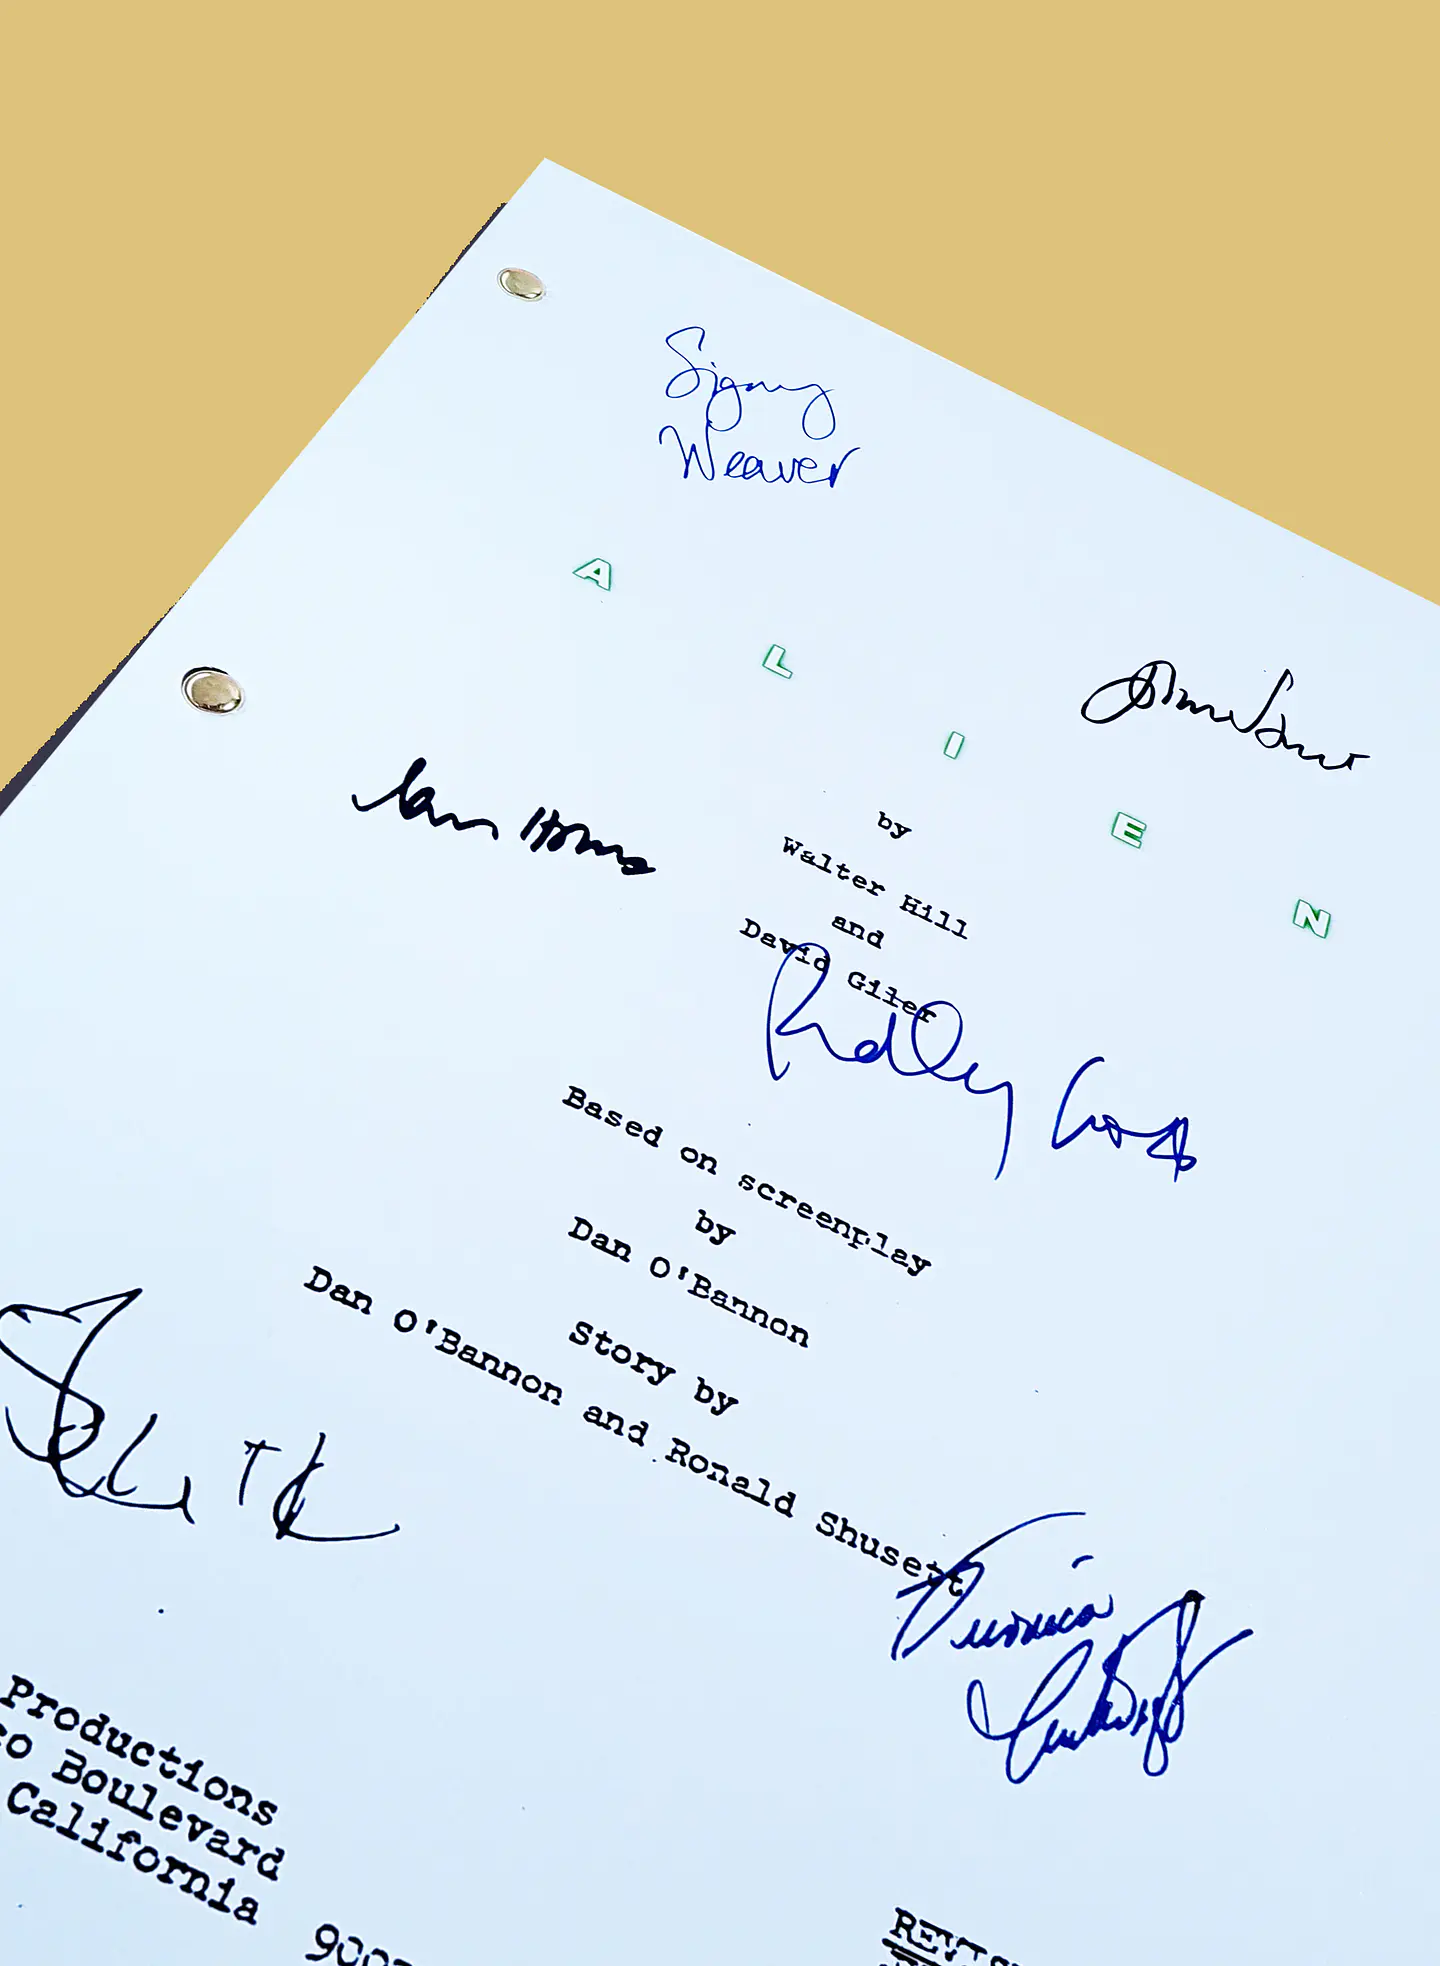 Sigourney
Weaver
A L I E N
by
Walter Hill
and
David Giler
Ian Holm
Ridley Scott
Based on screenplay
by
Dan O'Bannon
Story by
Dan O'Bannon and Ronald Shusett
Veronica
Cartwright
Productions
Boulevard
California 900